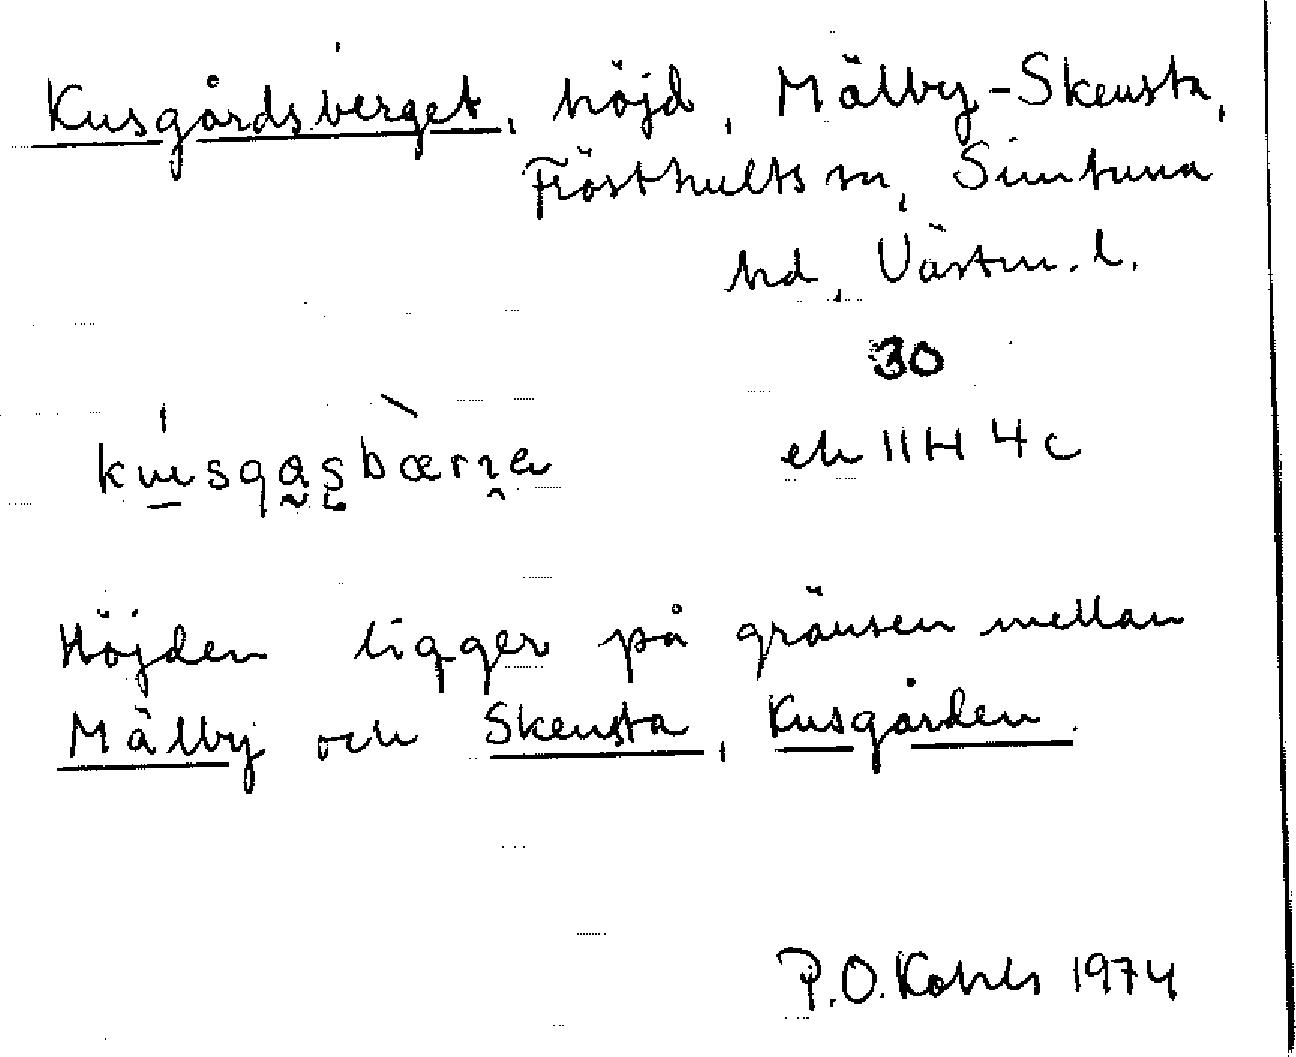 Kusgårdsberget, höjd, Mälby-Skensta,
Frösthults sn, Simtuna
hd, Västm. l.
30
ek 11H 4c
Höjden ligger på gränsen mellan
Mälby och Skensta, Kusgården.
P.O. Kohls 1974